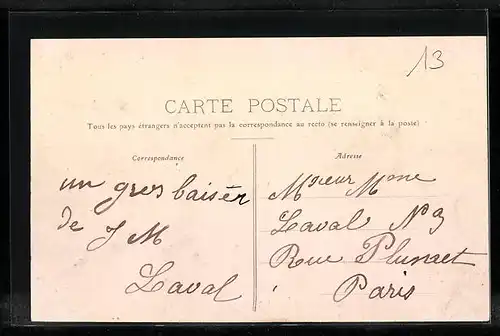 13
CARTE POSTALE
Tous les pays étrangers n'acceptent pas la correspondance au recto (se renseigner à la poste)
Correspondance
un gros baisér
de J M
Laval
Adresse
Mme
Laval No 9
Rue
Paris